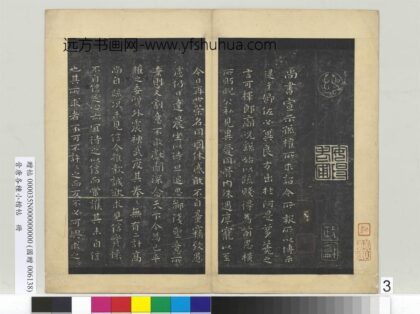 远方书画网-www.yfshuhua.com
尚書宣示孫權所求詔令所報所以博示
逮于卿佐必冀良方出於阿是芻蕘之
言可擇郎廟況繇始以疏賤得為前恩橫
所盱睨公私見異愛同骨肉殊遇厚寵以至
今日再世榮名同國休慼敢不自量竊致愚
慮仍日達晨坐以待旦退思鄙淺聖意所
棄則又割意不敢獻聞深念天下今為已平
權之委質外震神武度其拳拳無有二計高
尚自疏況未見信今推款誠欲求見信實懷
不自信之心亦宜待之以信而當護其未自信
也其所求者不可不許許之而反不必可與求之
贈帖 000035N000000000 (國贈 006138)
晉唐各種小楷帖 冊
3